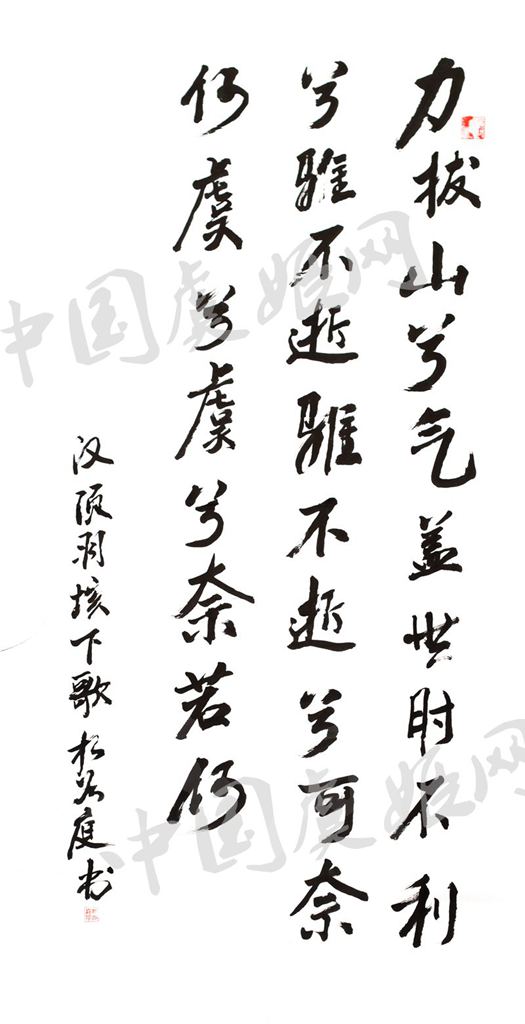 力拔山兮气盖世时不利
兮騅不逝騅不逝兮可奈
何虞兮虞兮奈若何
汉项羽垓下歌 书
中国虞姬网
中国虞姬网